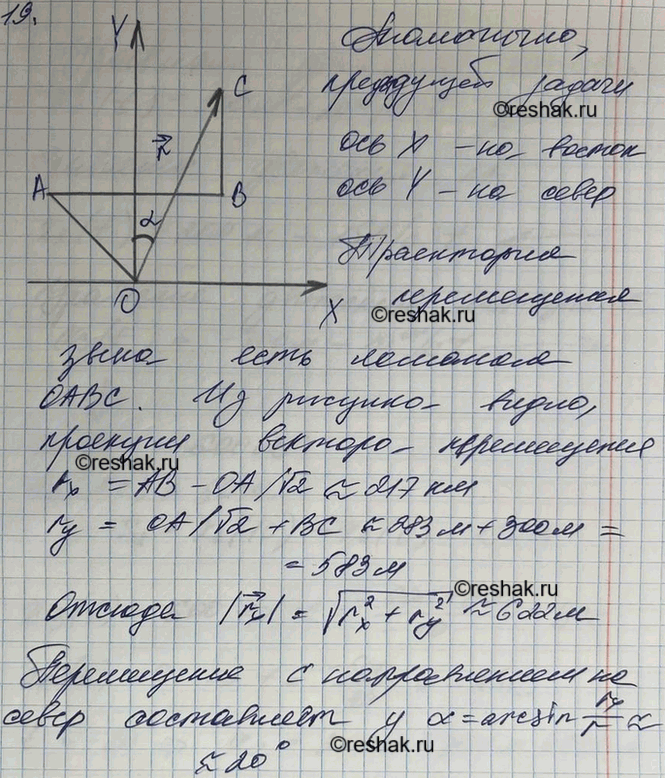 19.
Y
Аналогично,
предыдущей задачи
C
r
reshak.ru
ось X – на восток
A
B
ось Y – на север
α
Траектория
O
X
перемещения
reshak.ru
звена есть ломаная
OABC. Из рисунка видно,
проекции вектора перемещения
reshak.ru
rx = AB – OA/√2 ≈ 217 км
ry = OA/√2 + BC ≈ 283 м + 300 м =
= 583 м
reshak.ru
Отсюда |r⃗| = √rx² + ry² ≈ 622 м
Перемещение с направлением на
север составляет у α = arcsin ry/r ≈
≈ 20°
reshak.ru